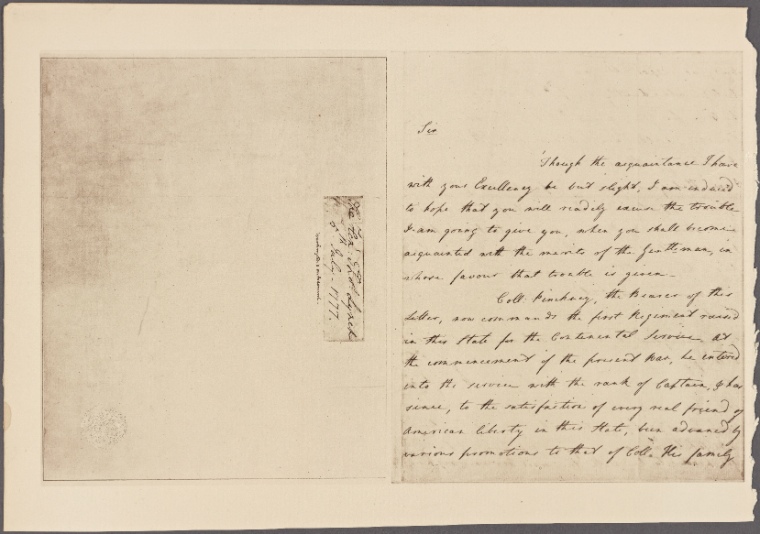 Tho.s Lynch
5th July 1777.
Sir
Though the acquaintance I have
with your Excellency be but slight, I am induced
to hope that you will readily excuse the trouble
I am going to give you, when you shall become
acquainted with the merits of the Gentleman, in
whose favour that trouble is given.
Coll. Pinckney, the Bearer of this
Letter, now commands the first Regiment raised
in this State for the Continental Service. At
the commencement of the present War, he entered
into the service with the rank of Captain, & has
since, to the satisfaction of every real friend of
American liberty in this State, been advanced by
various promotions to that of Coll. His family